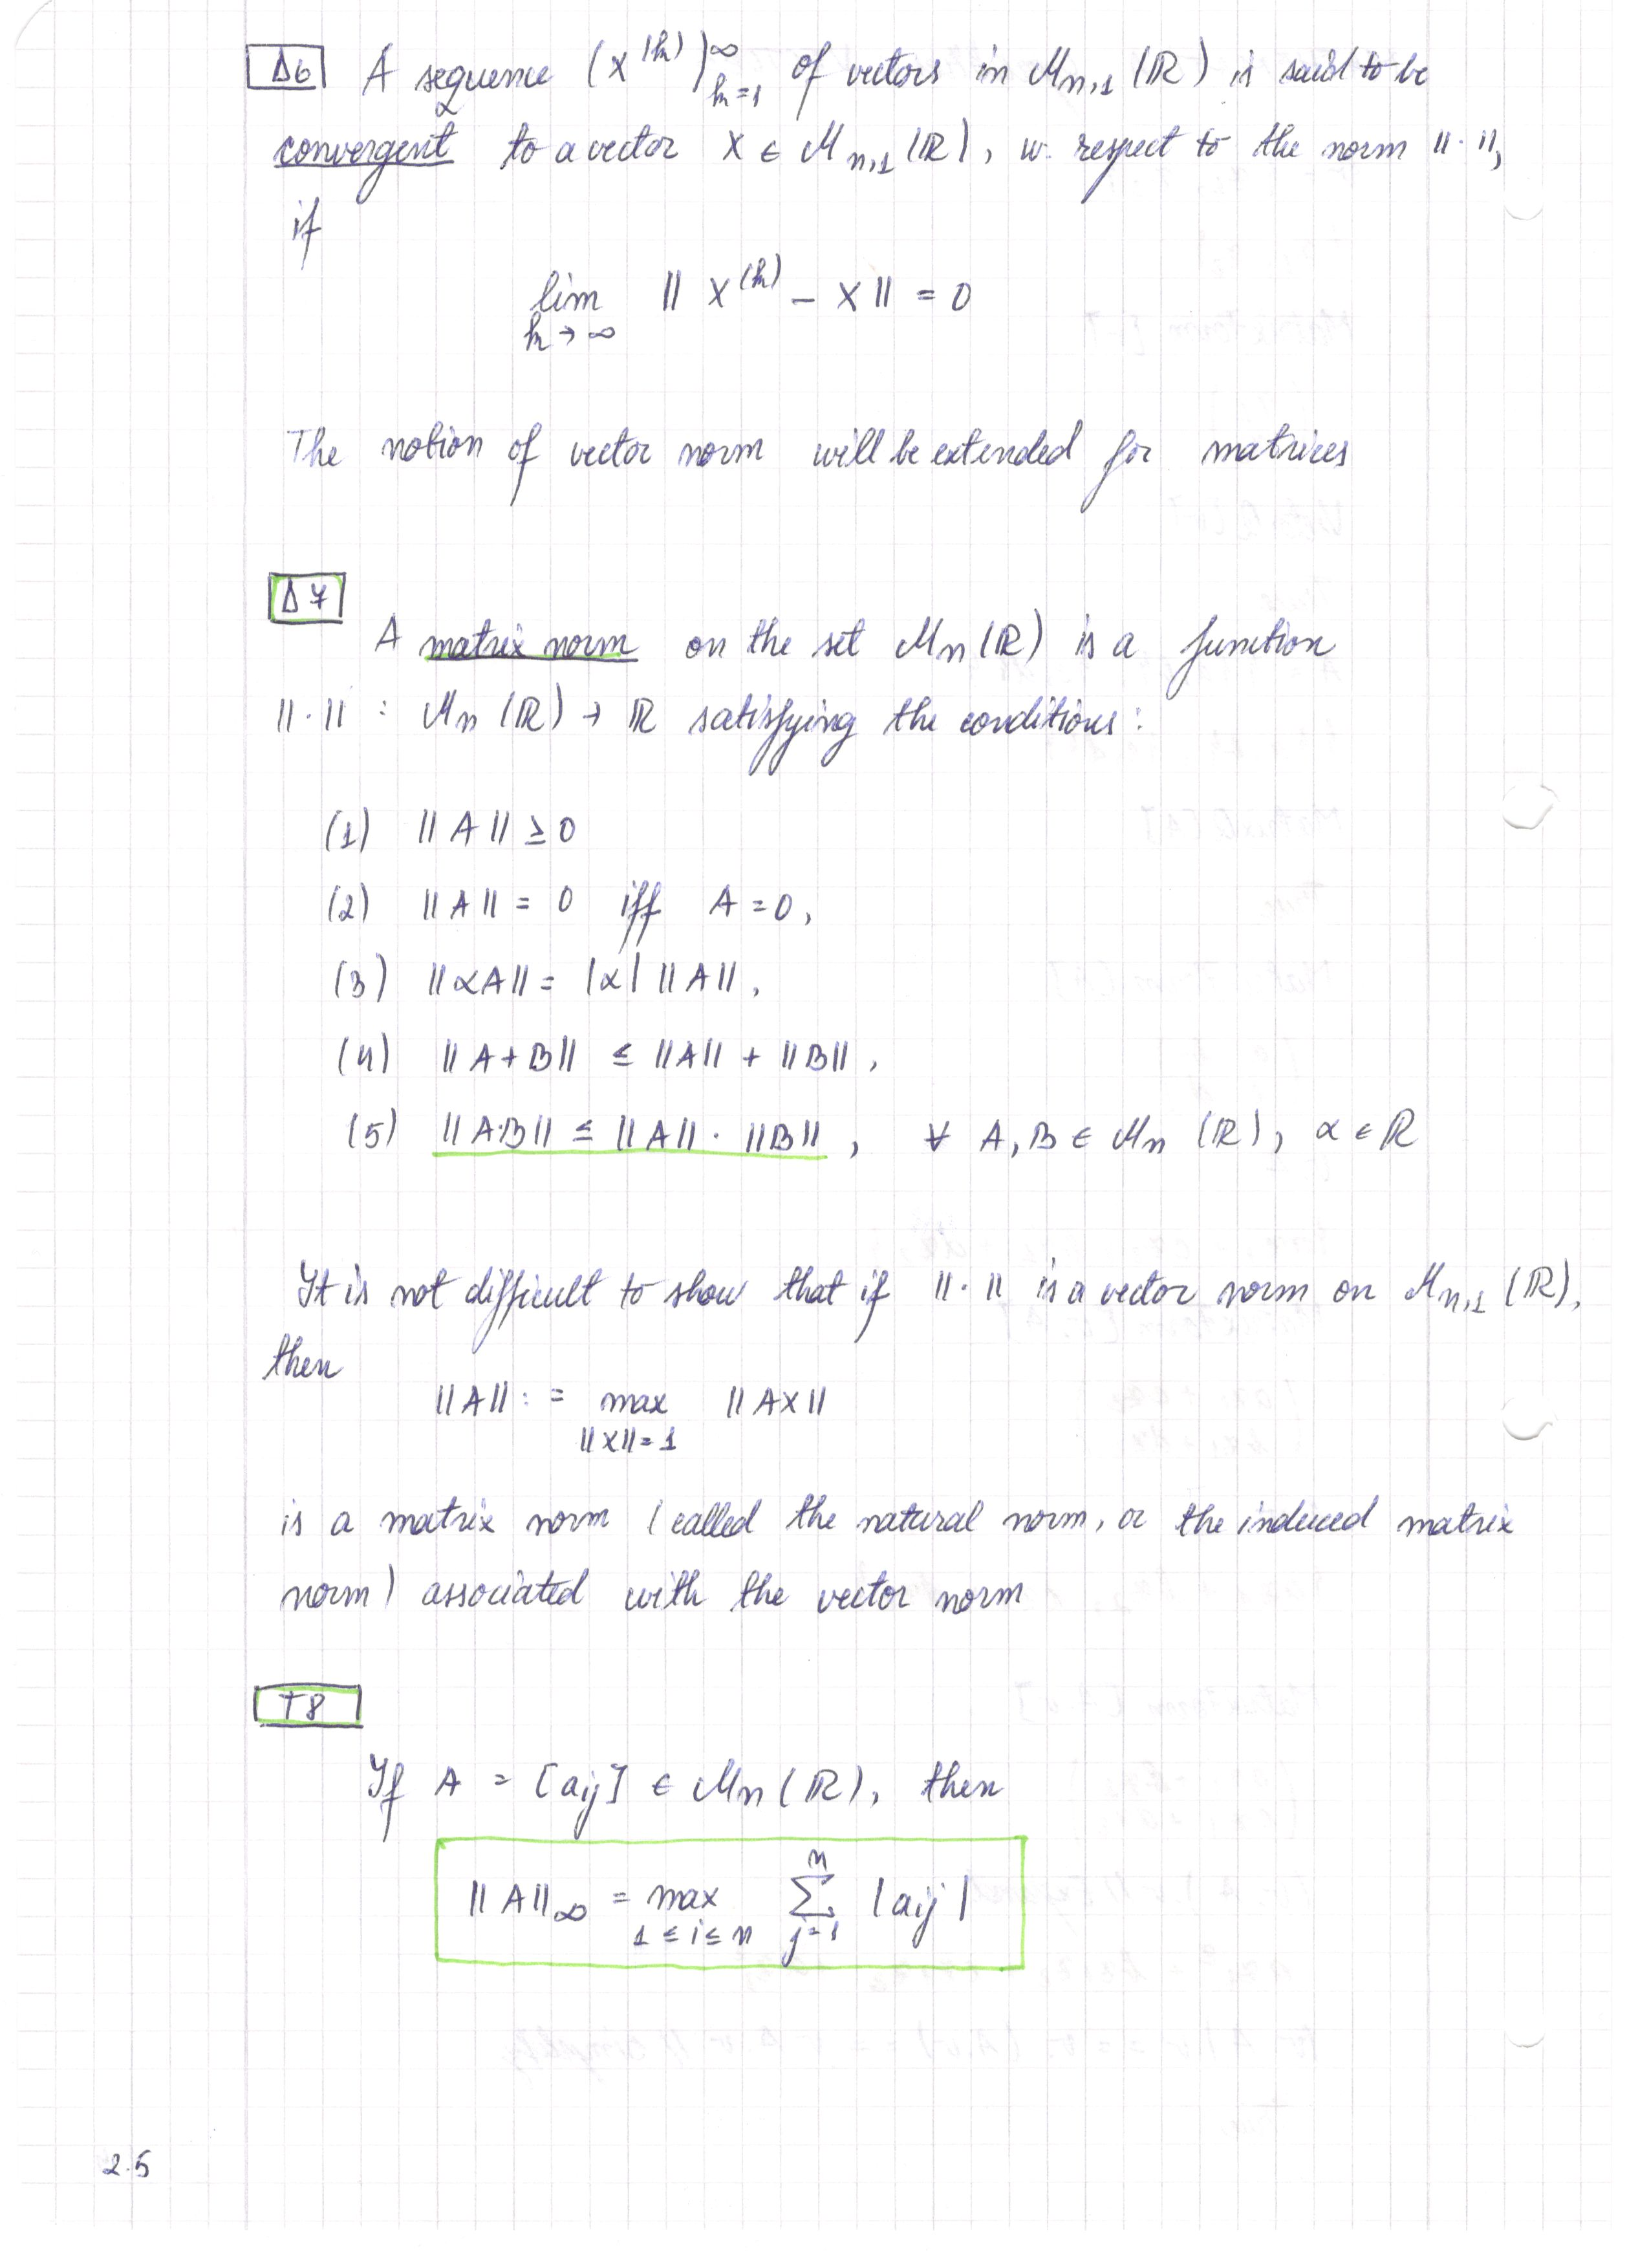 Δ6 A sequence (X^(k))_{k=1}^∞ of vectors in M_{n,1}(ℝ) is said to be
convergent to a vector X ∈ M_{n,1}(ℝ), w. respect to the norm ||·||,
if
lim_{k→∞} || X^(k) − X || = 0
The notion of vector norm will be extended for matrices
Δ7
A matrix norm on the set M_n(ℝ) is a function
||·|| : M_n(ℝ) → ℝ satisfying the conditions:
(1) || A || ≥ 0
(2) || A || = 0 iff A = 0,
(3) || αA || = |α| || A ||,
(4) || A + B || ≤ || A || + || B ||,
(5) || A·B || ≤ || A || · || B ||, ∀ A, B ∈ M_n(ℝ), α ∈ ℝ
It is not difficult to show that if ||·|| is a vector norm on M_{n,1}(ℝ),
then
|| A || := max_{||X||=1} || AX ||
is a matrix norm (called the natural norm, or the induced matrix
norm) associated with the vector norm
T8
If A = [aij] ∈ M_n(ℝ), then
|| A ||_∞ = max_{1≤i≤n} ∑_{j=1}^{n} |aij|
2.5